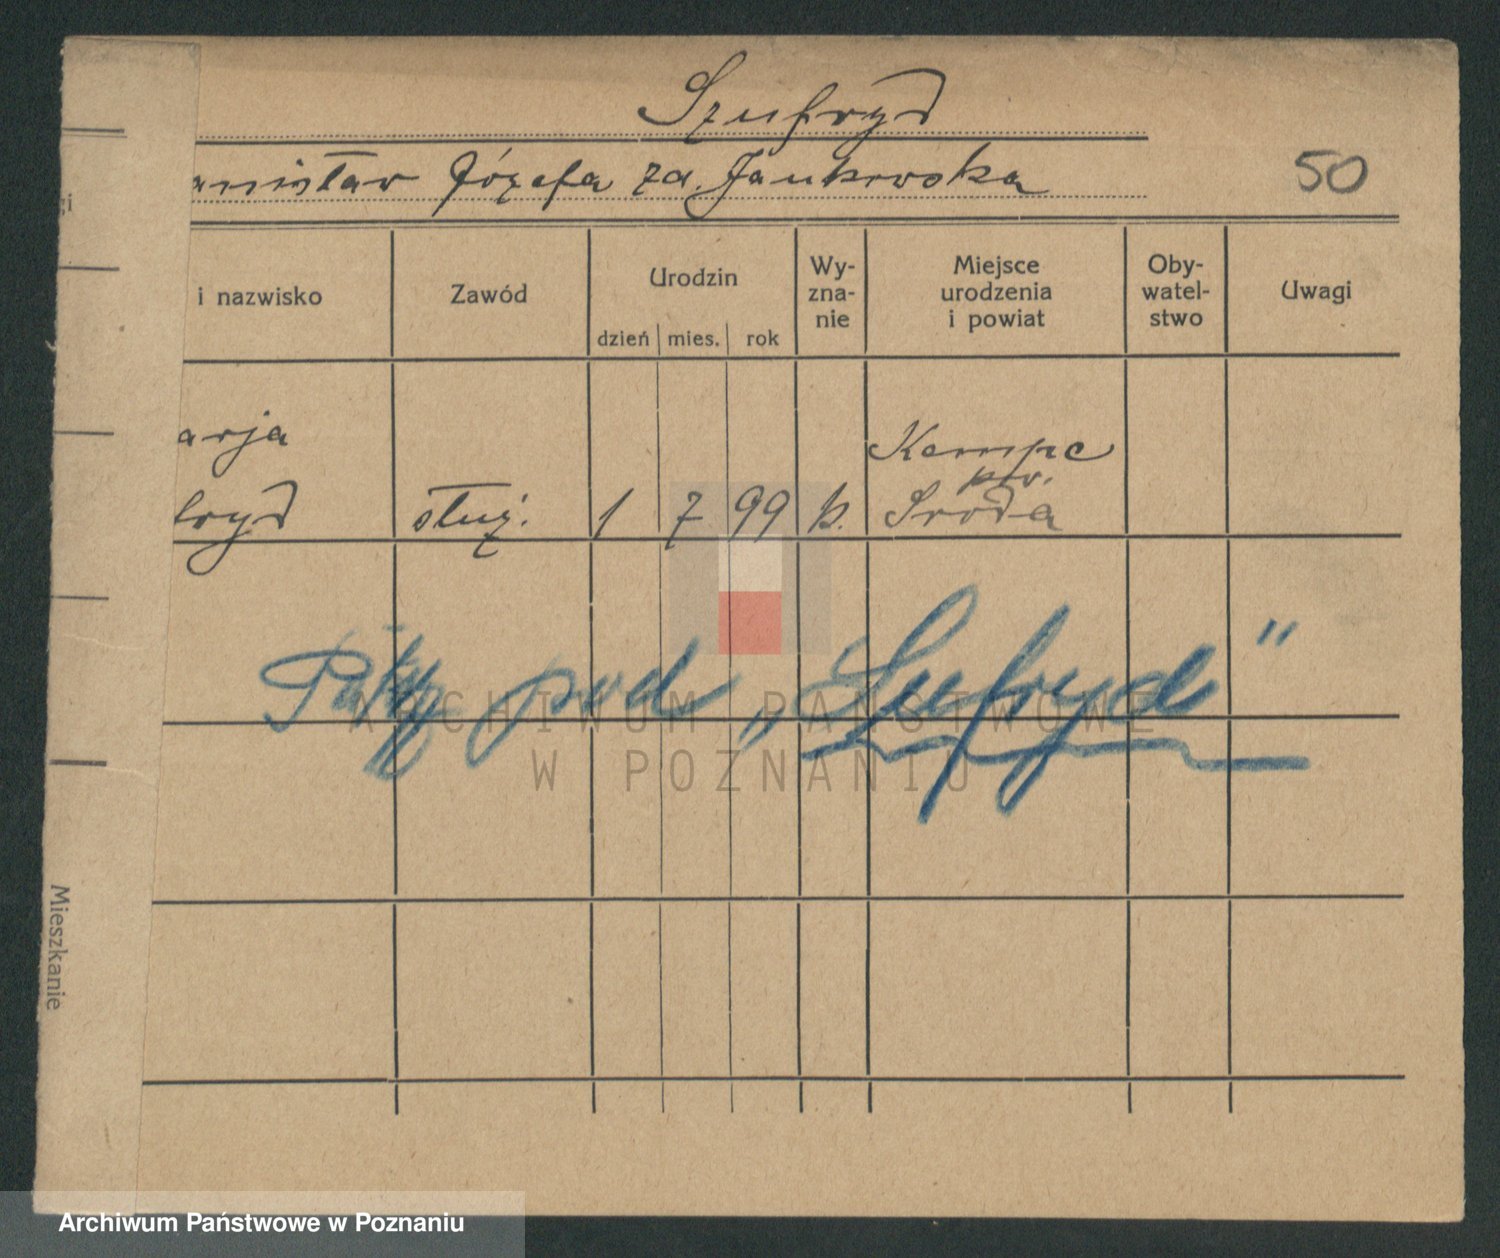 Szufryd
anisław Józefa zd. Jankowska
50
i nazwisko
Zawód
Urodzin
dzień
mies.
rok
Wy-
zna-
nie
Miejsce
urodzenia
i powiat
Oby-
watel-
stwo
Uwagi
arja
fryd
służ.
1
7
99
k.
Kempe
pow.
Sroda
pod „Sufryd"
Mieszkanie
ARCHIWUM PAŃSTWOWE
W POZNANIU
Archiwum Państwowe w Poznaniu